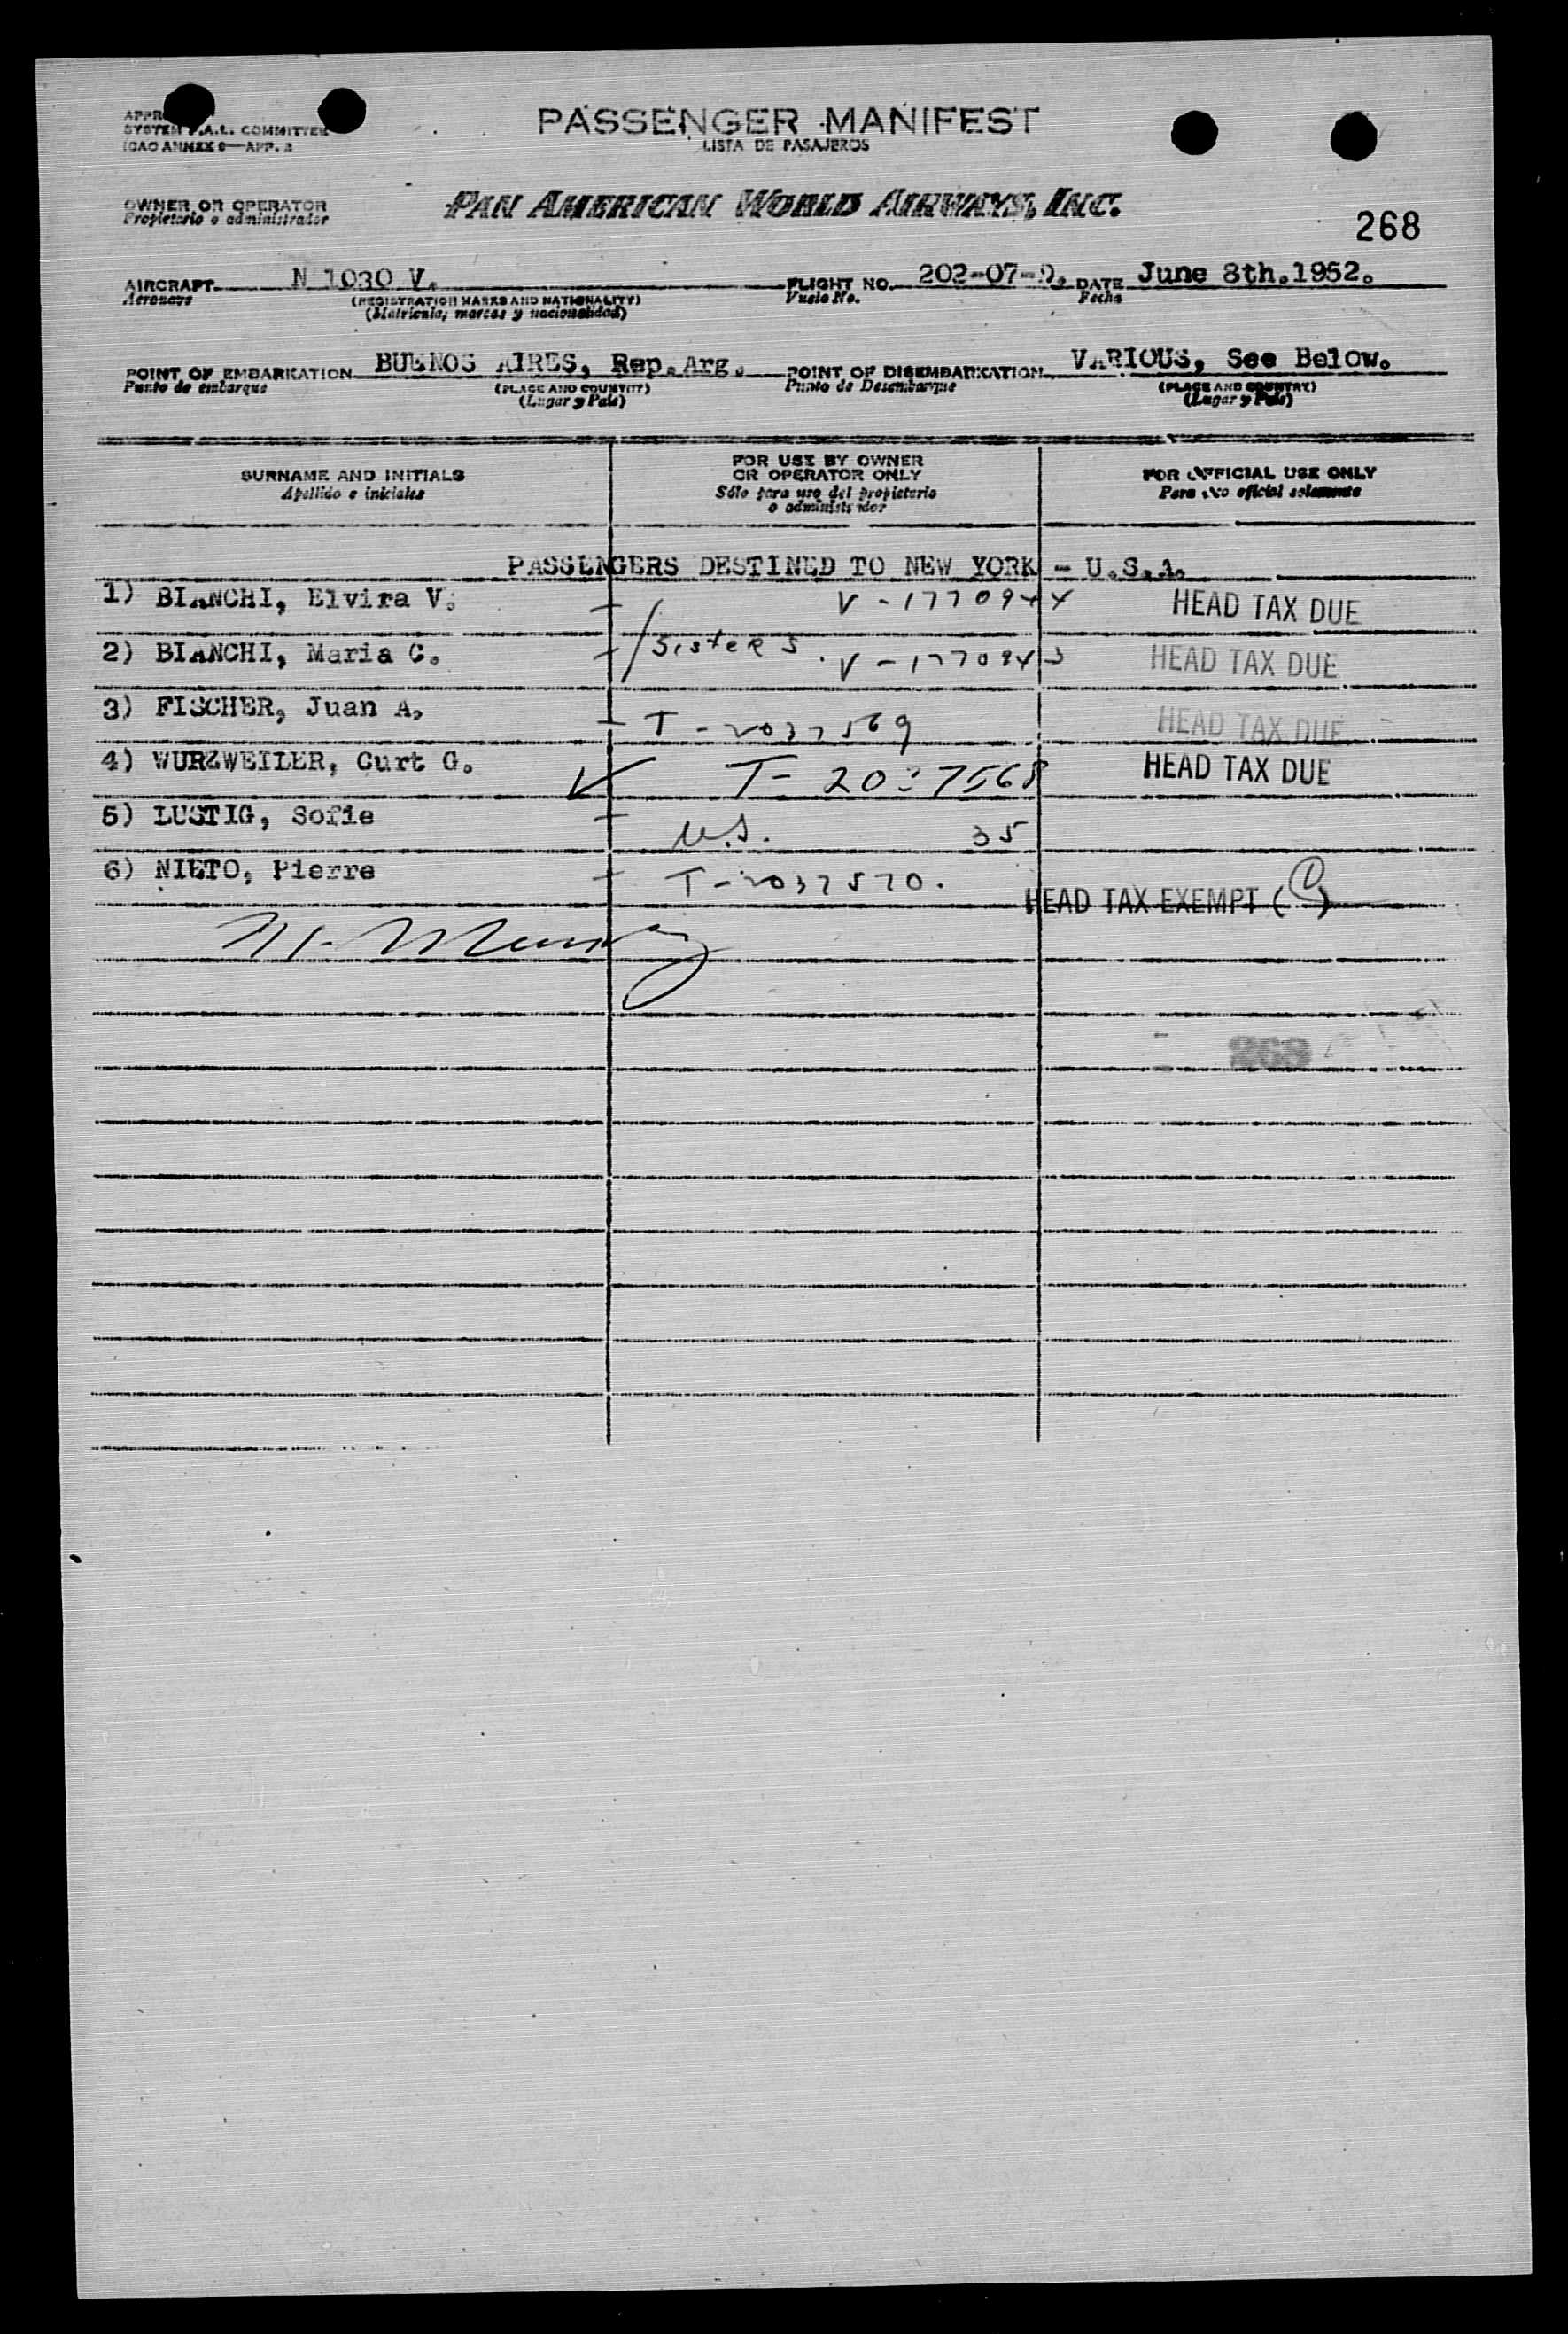 SYSTEM F.A.L. COMMITTEE
ICAO ANNEX 9—APP. 2
PASSENGER MANIFEST
LISTA DE PASAJEROS
OWNER OR OPERATOR
Propietario o administrador
PAN AMERICAN WORLD AIRWAYS, INC.
268
AIRCRAFT N 1030 V. FLIGHT NO. 202-07-9. DATE June 8th.1952.
Aeronave (REGISTRATION MARKS AND NATIONALITY) Vuelo No. Fecha
(Matricula, marcas y nacionalidad)
POINT OF EMBARKATION BUENOS AIRES, Rep.Arg. POINT OF DISEMBARKATION VARIOUS, See Below.
Punto de embarque (PLACE AND COUNTRY) Punto de Desembarque (PLACE AND COUNTRY)
(Lugar y Pais) (Lugar y Pais)
SURNAME AND INITIALS
Apellido e iniciales
FOR USE BY OWNER
OR OPERATOR ONLY
Sólo para uso del propietario
o administrador
FOR OFFICIAL USE ONLY
Para uso oficial solamente
PASSENGERS DESTINED TO NEW YORK - U.S.A.
1) BIANCHI, Elvira V. V-1770944 HEAD TAX DUE
2) BIANCHI, Maria C. Sisters V-1770943 HEAD TAX DUE
3) FISCHER, Juan A. T-2037569 HEAD TAX DUE
4) WURZWEILER, Curt G. T-2037568 HEAD TAX DUE
5) LUSTIG, Sofie U.S. 35
6) NIETO, Pierre T-2037570. HEAD TAX EXEMPT (C)